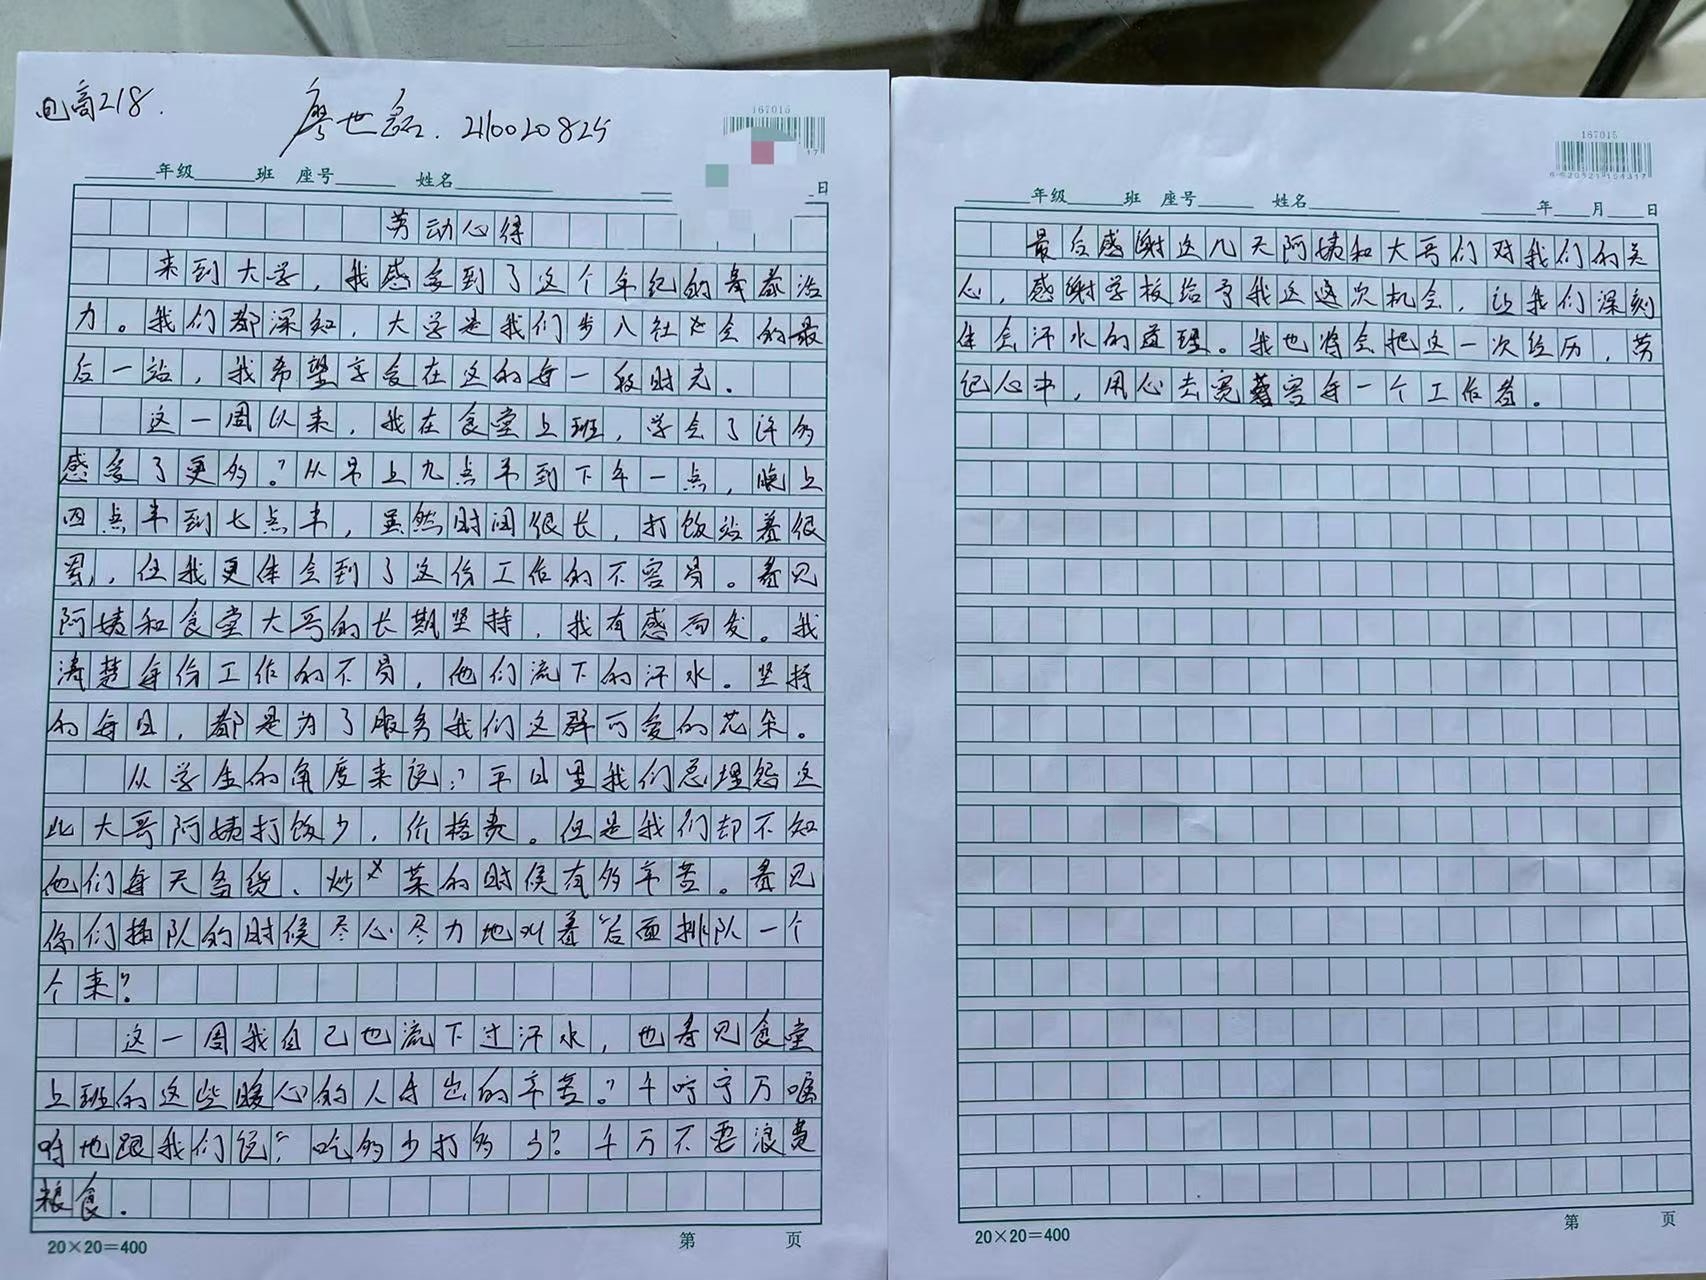 电商218.
廖世磊. 210020825
167015
年级 班 座号 姓名 日
劳动心得
来到大学,我感受到了这个年纪的青春活
力。我们都深知,大学是我们步入社会的最
后一站,我希望享受在这的每一段时光.
这一周以来,我在食堂上班,学会了许多
感受了更多?从早上九点半到下午一点,晚上
四点半到七点半,虽然时间很长,打饭站着很
累,但我更体会到了这份工作的不容易。看见
阿姨和食堂大哥的长期坚持,我有感而发。我
清楚每份工作的不易,他们流下的汗水。坚持
的每日,都是为了服务我们这群可爱的花朵。
从学生的角度来说:?平日里我们总埋怨这
些大哥阿姨打饭少,价格贵。但是我们却不知
他们每天备货、炒菜的时候有多辛苦。看见
你们插队的时候尽心尽力地叫着“后面排队一个
个来?
这一周我自己也流下过汗水,也看见食堂
上班的这些暖心的人付出的辛苦?千叮宁万嘱
咐地跟我们说:“吃多少打多少?千万不要浪费
粮食.
20×20=400 第 页
167015
6 920921 154317
年级 班 座号 姓名 年 月 日
最后感谢这几天阿姨和大哥们对我们的关
心,感谢学校给予我这这次机会,让我们深刻
体会汗水的道理。我也将会把这一次经历,劳
记心中,用心去宽容每一个工作者.
20×20=400 第 页